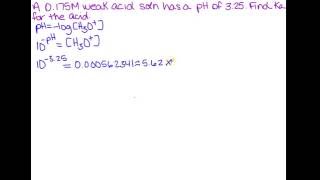 A 0.175M weak acid soln has a pH of 3.25. Find Ka
for the acid.
pH=-log[H₃O⁺]
10^-pH = [H₃O⁺]
10^-3.25 = 0.000562341 ≈ 5.62 x